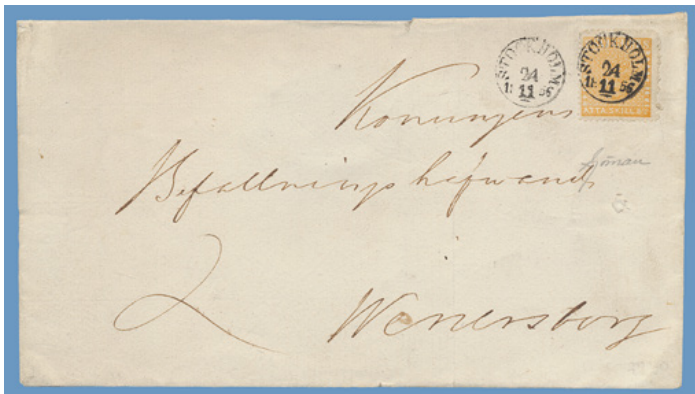 STOCKHOLM
24
11
1856
STOCKHOLM
24
11
1856
Konungens
Befallningshafwande
Wenersborg